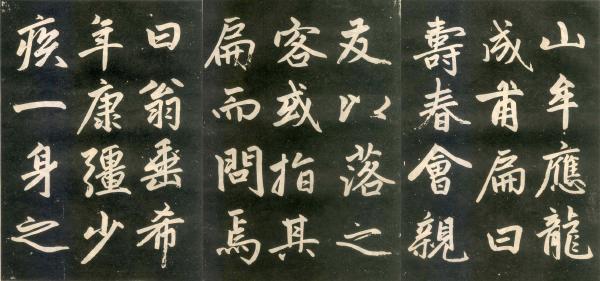 山牟應龍
成甫扁曰
壽春會親
友以落之
客或指其
扁而問焉
曰翁垂希
年康彊少
疾一身之